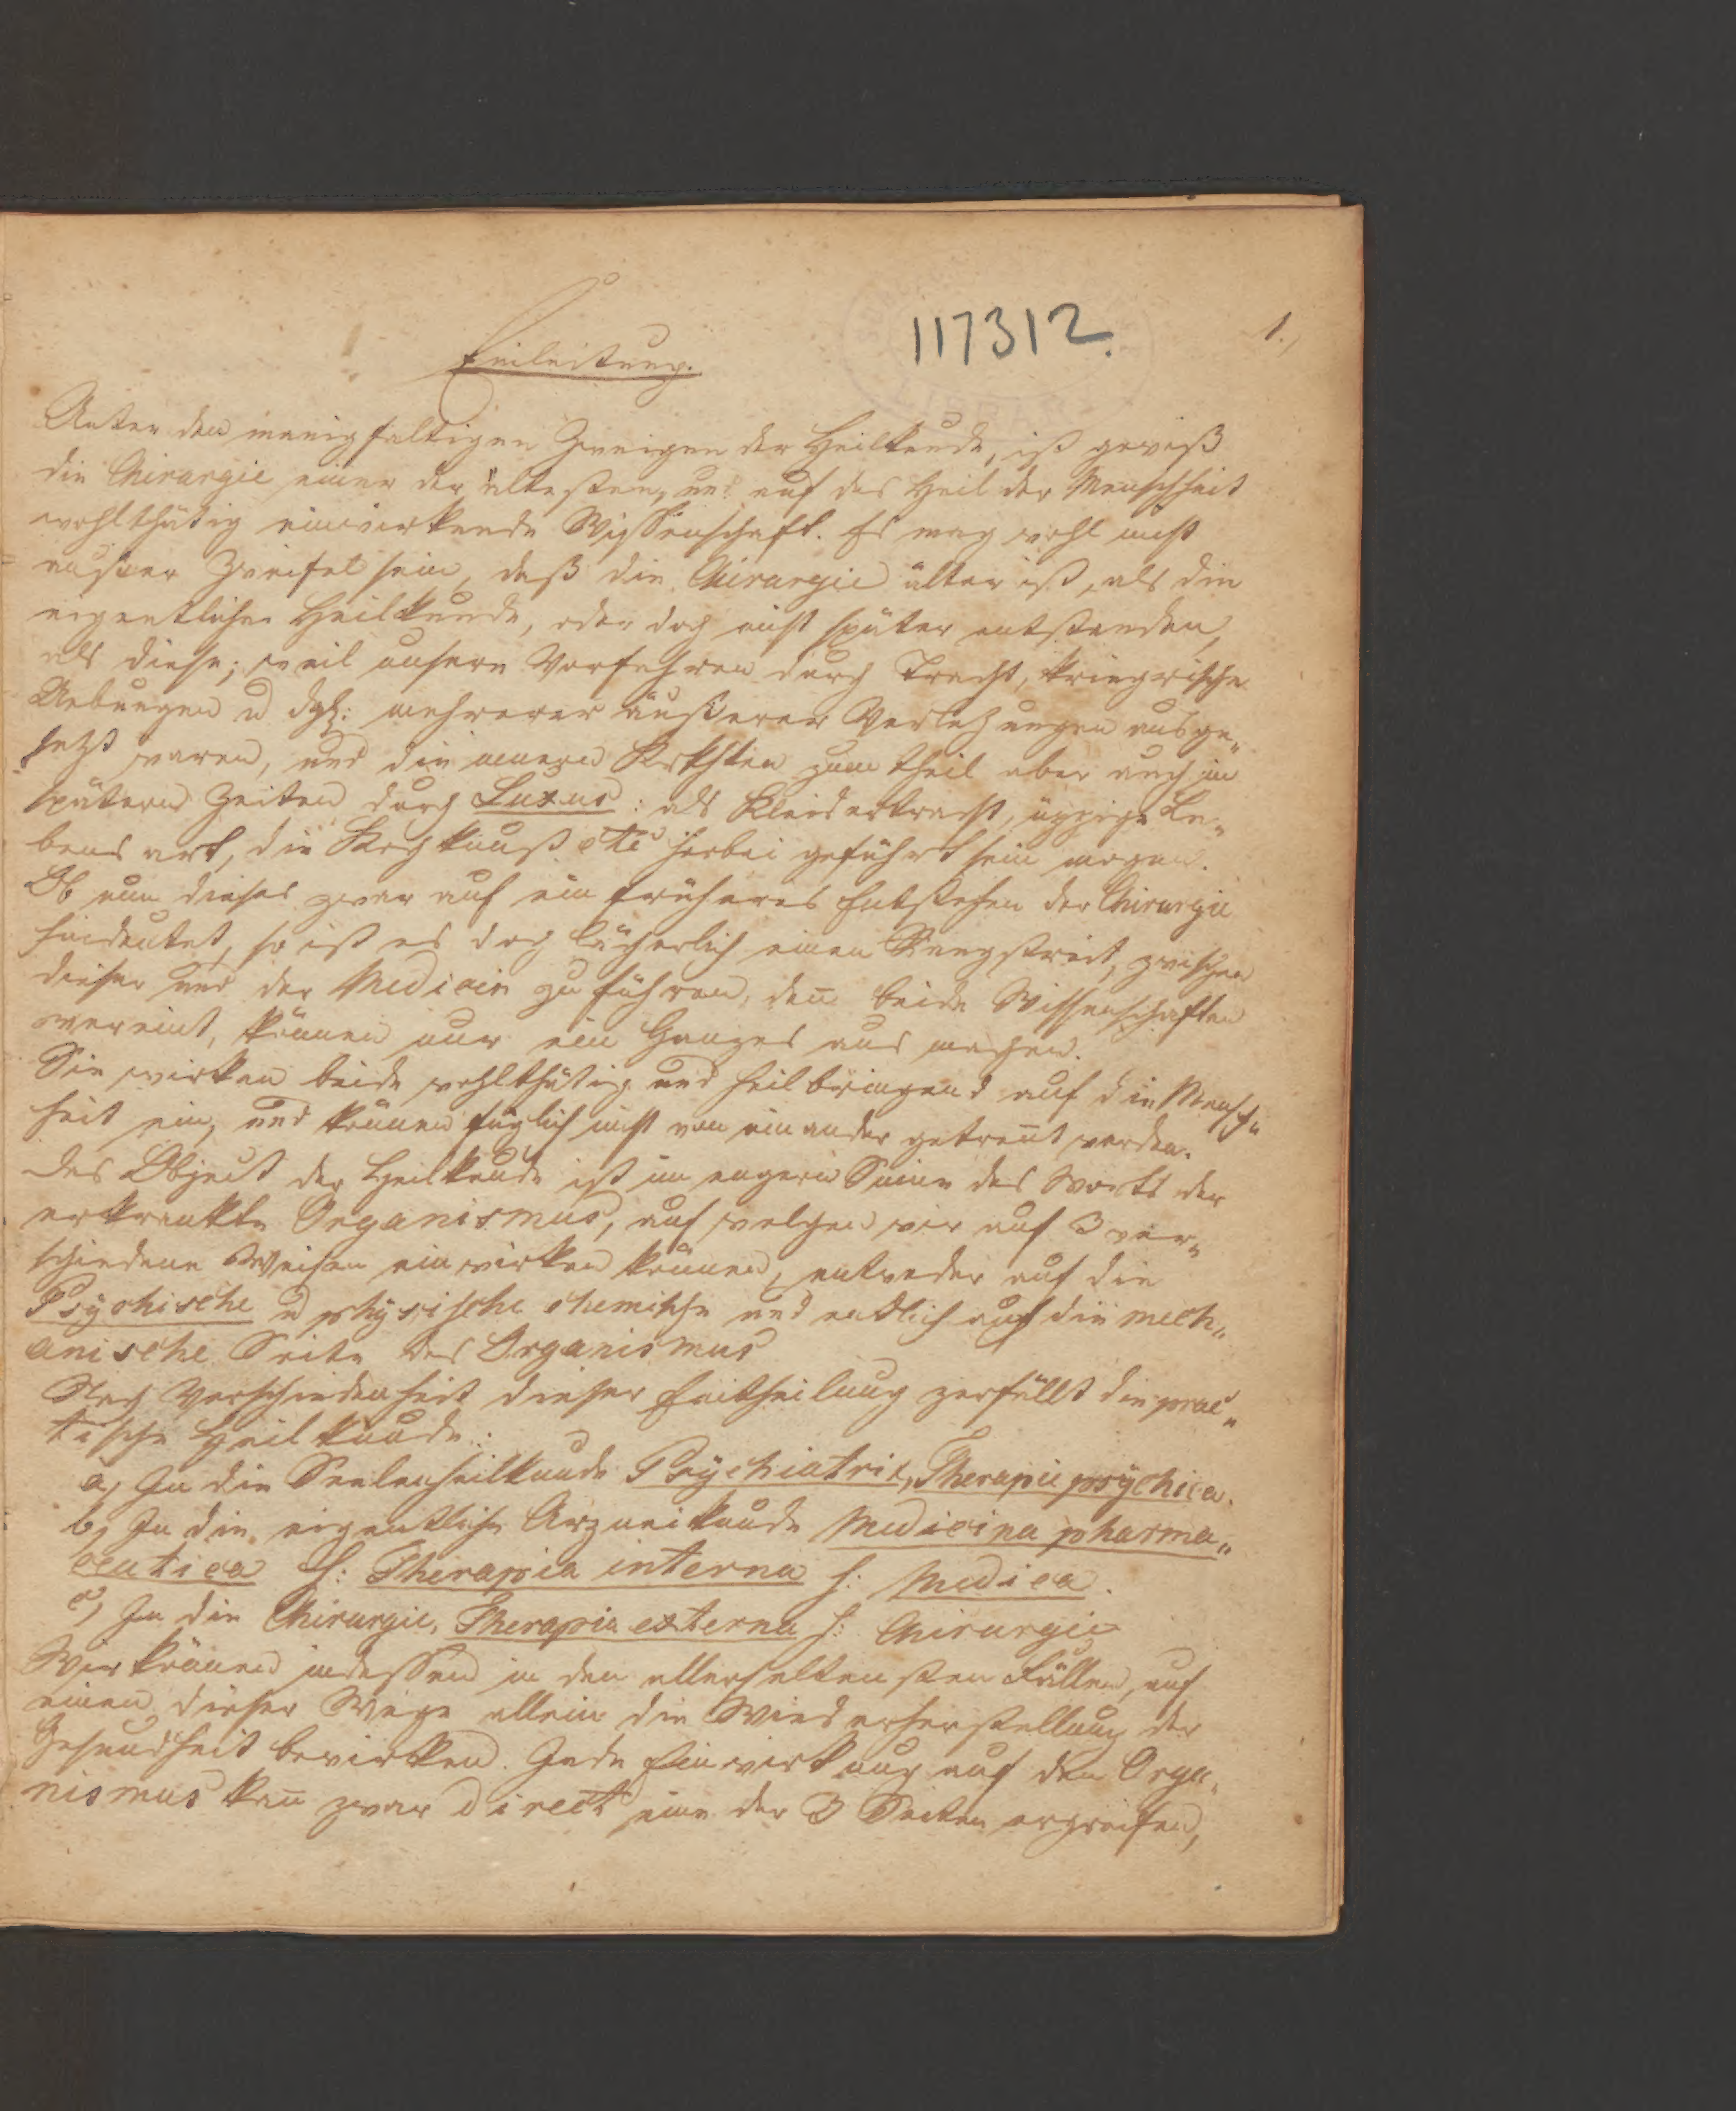 117312.
1.)
Einleitung.
Unter den mannigfaltigen Zweigen der Heilkunde, ist gewiß
die Chirurgie einer der ältesten, und auf das Heil der Menschheit
wohlthätig einwirkende Wissenschaft. Es mag wohl nicht
ausser Zweifel sein, daß die Chirurgie älter ist, als die
eigentliche Heilkunde, oder doch nicht später entstanden,
als diese; weil unsere Vorfahren durch Tracht, kriegrische
Uebungen u dgl: mehrerer äußerer Verletzungen ausge„
setzt waren, und die innern Krkhten zum theil aber auch in
spätern Zeiten durch Luxus: als Kleidertracht, üppige Le„
bens art, die Kochkunst etc herbei geführt sein mogen.
Ob nun dieses zwar auf ein früheres Entstehen der Chirurgie
hindeutet, so ist es doch lächerlich einen Rangstreit, zwischen
dieser und der Medicin zu führen, den̄ beide Wissenschaften
vereint, können nur ein Ganzes aus machen.
Sie wirken beide wohlthätig und heilbringend auf die Mensch„
heit ein, und können füglich nicht von einander getren̄t werden.
Das Object der Heilkunde ist im engern Sinne des Worts der
erkrankte Organismus, auf welchen wir auf 3 ver„
schiedene Weisen einwirken können, entweder auf die
Psychische u physische chemische und endlich auf die mech„
anische Seite des Organismus
Nach Verschiedenheit dieser Eintheilung zerfällt die prac„
tische Heilkunde:
a, In die Seelenheilkunde Psychiatrie, Therapie psychica.
b, In die eigentliche Arzneikunde Medicina pharma„
ceutica s: Therapia interna s: Medica.
c, In die Chirurgie, Therapia externa s: Chirurgie
Wir können indessen in den allerseltensten Fällen, auf
einen dieser Wege allein die Wiederherstellung der
Gesundheit bewirken. Jede Einwirkung auf den Orga„
nismus kan̄ zwar direct eine der 3 Seiten ergreifen,